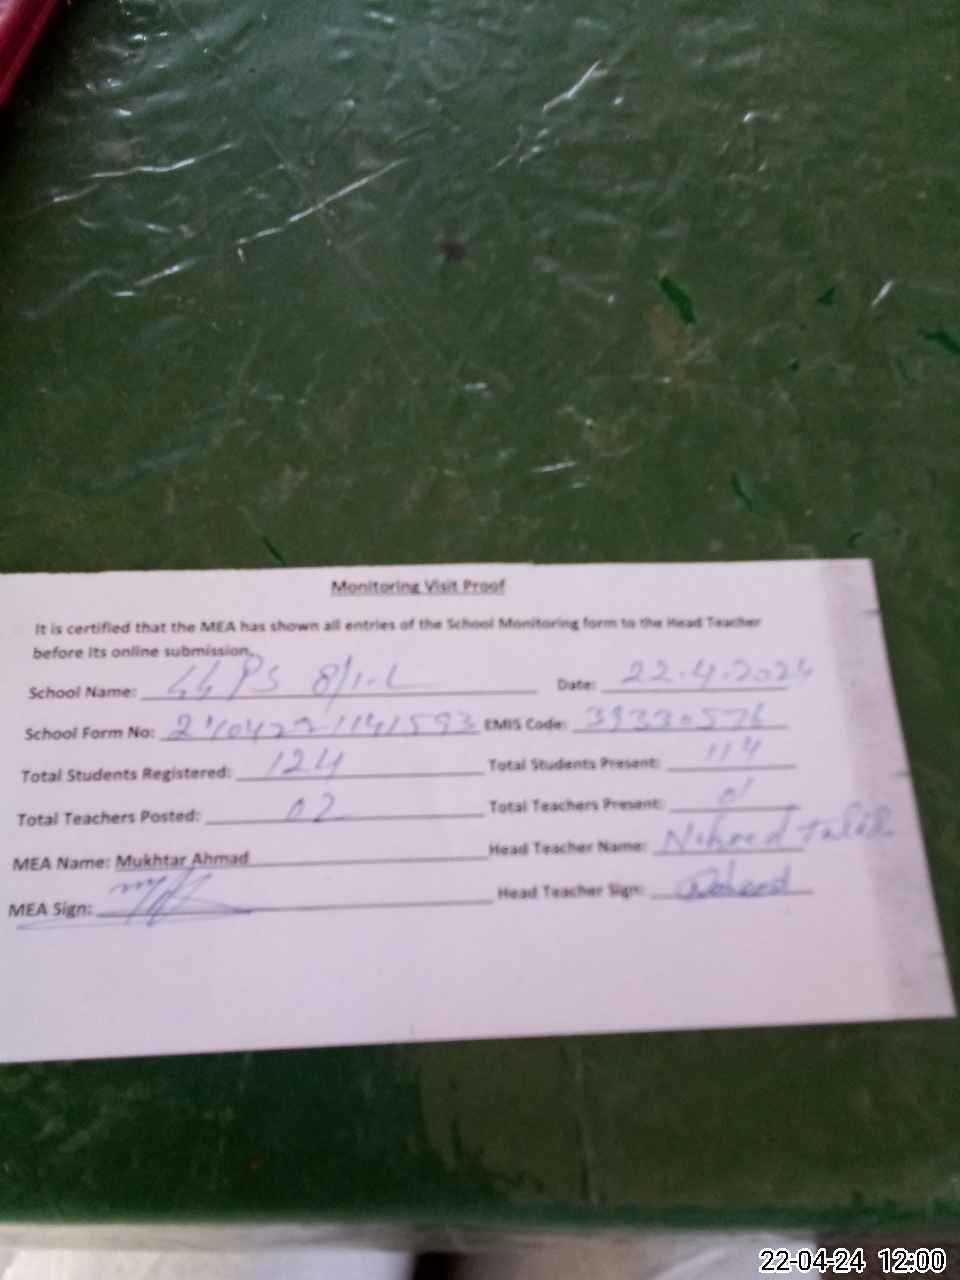 Monitoring Visit Proof
It is certified that the MEA has shown all entries of the School Monitoring form to the Head Teacher
before Its online submission.
School Name: GGPS 8/1-L Date: 22-4-2024
School Form No: EMIS Code: 39330576
Total Students Registered: 124 Total Students Present: 114
Total Teachers Posted: 02 Total Teachers Present: 01
MEA Name: Mukhtar Ahmad Head Teacher Name: Naheed
MEA Sign: Head Teacher Sign: Naheed
22-04-24 12:00